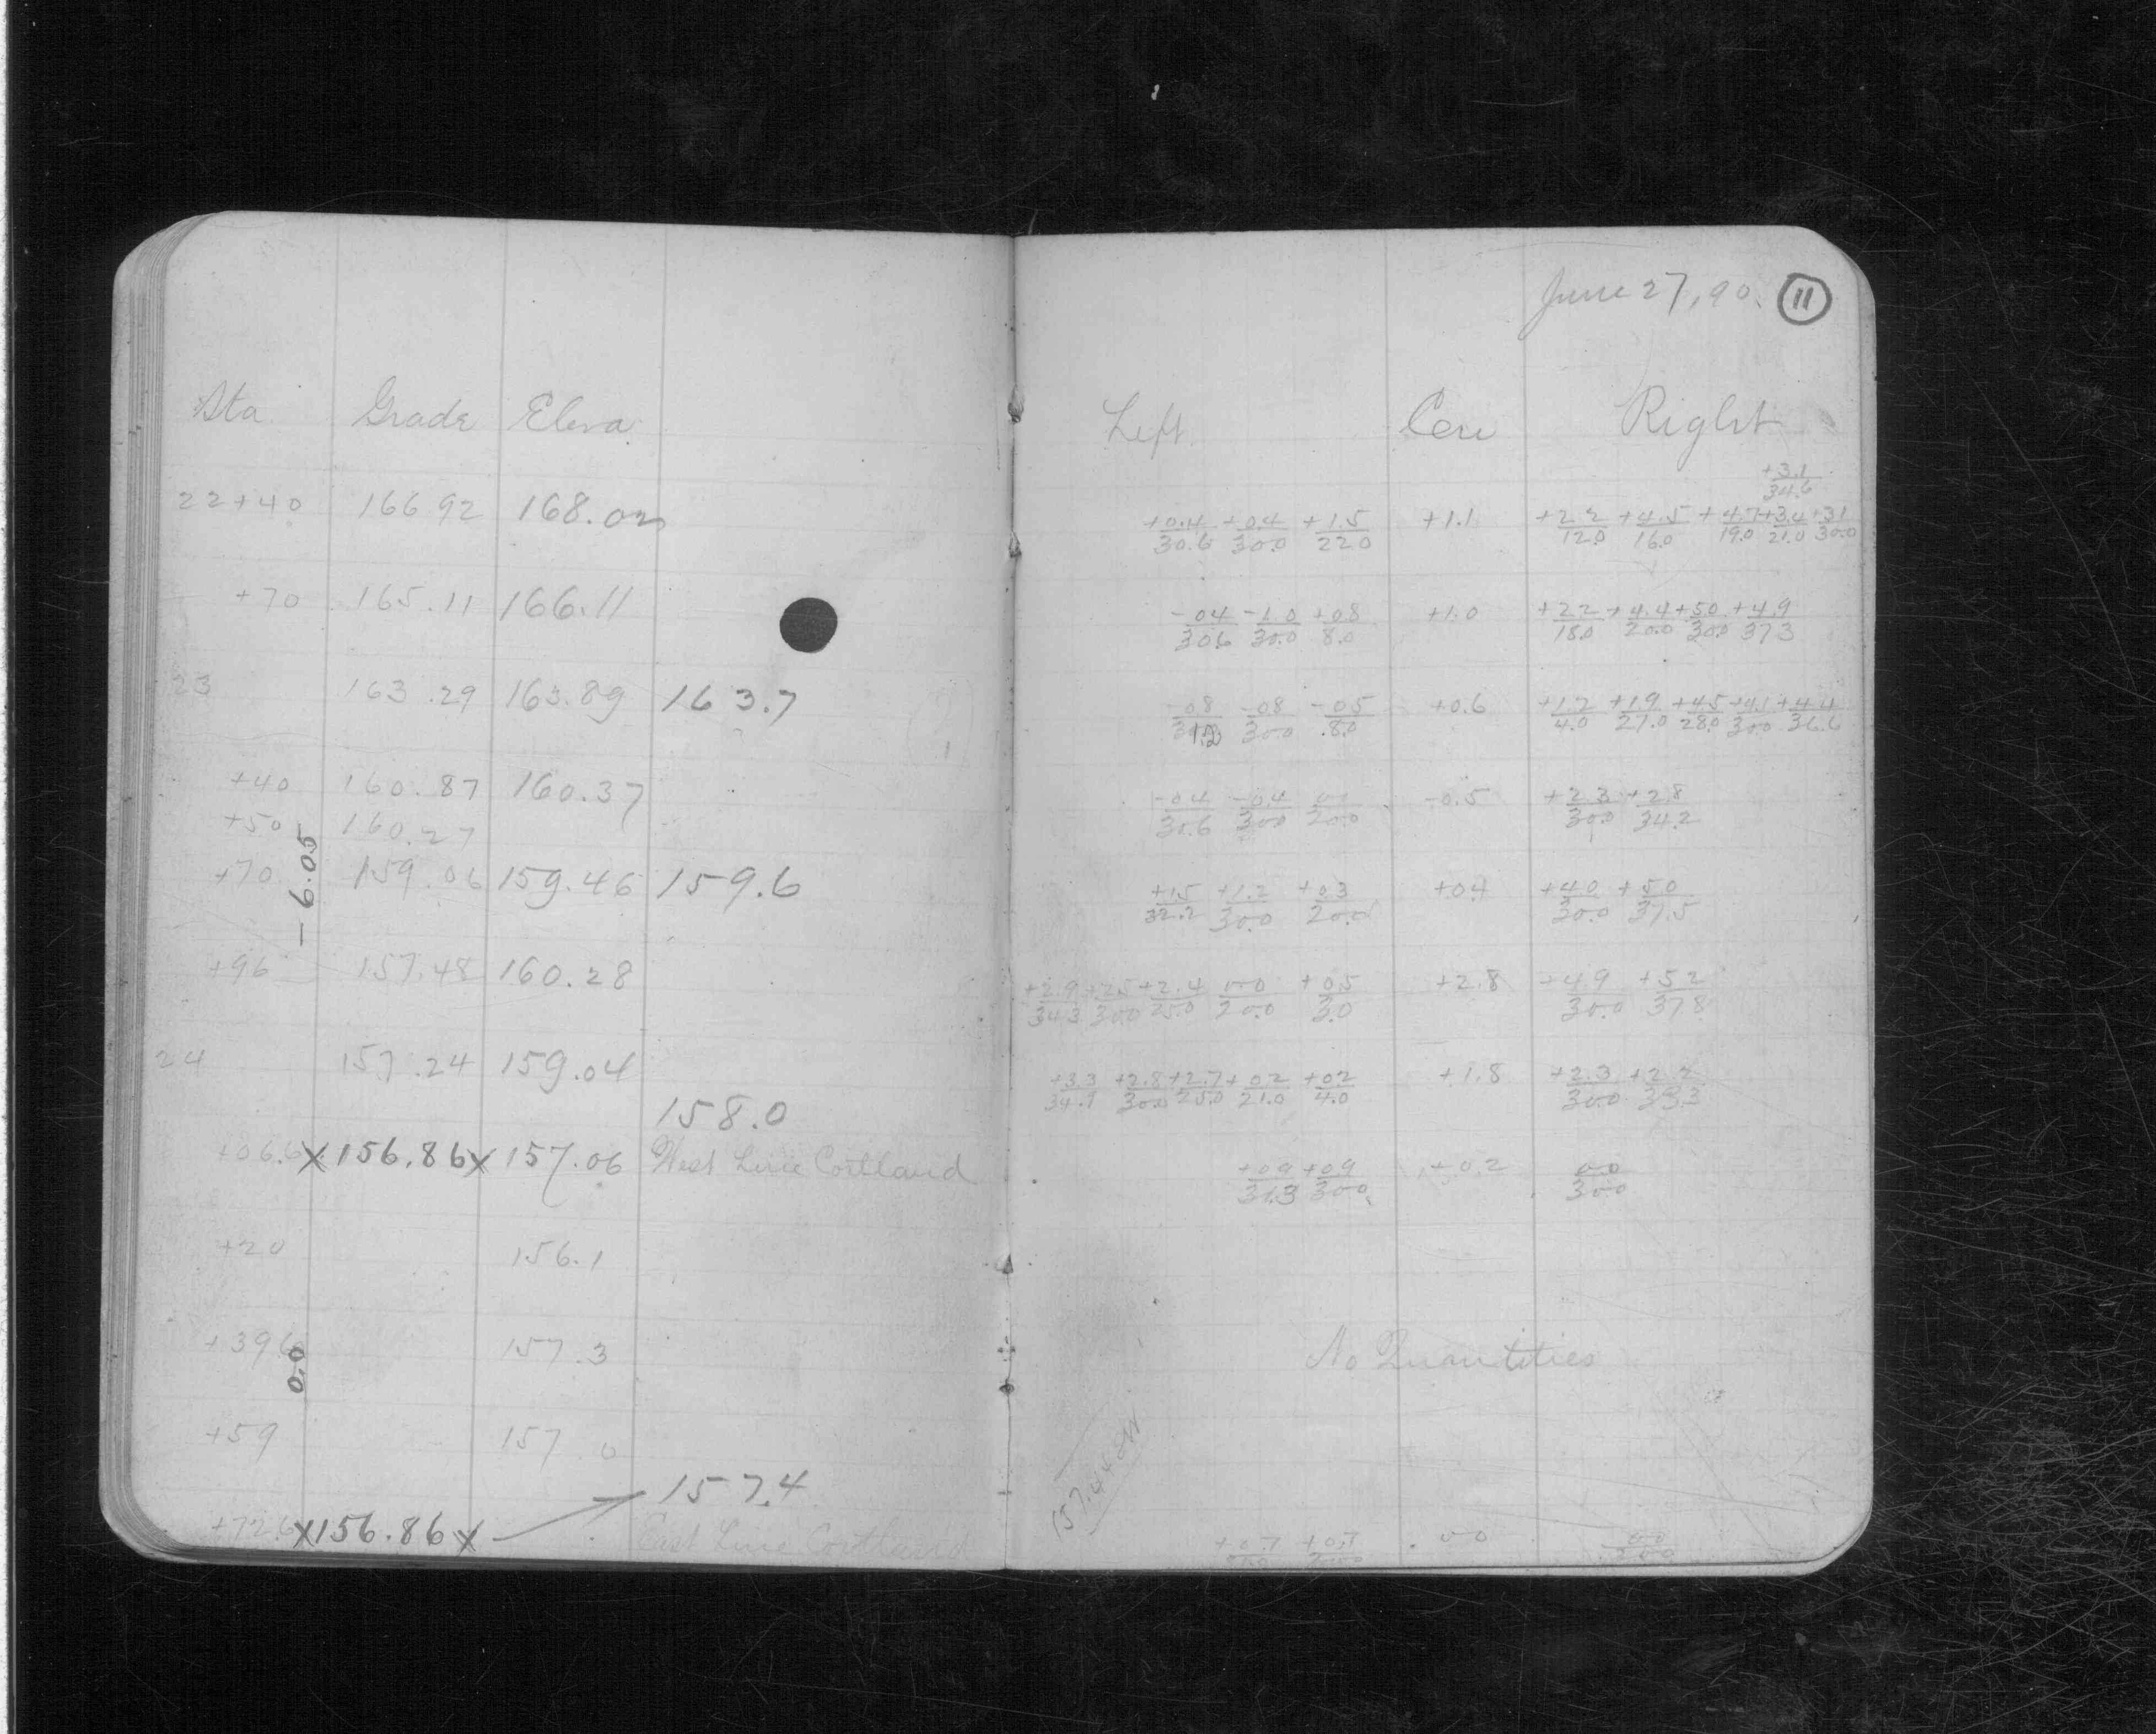 June 27, 90. 11
Sta Grade Eleva. Left. Cen Right
+3.1/34.6
22+40 166 92 168.02 +0.4/30.6 +0.4/30.0 +1.5/22.0 +1.1 +2.2/12.0 +4.5/16.0 +4.7/19.0 +3.4/21.0 +3.1/30.0
+70 165.11 166.11 -0.4/30.6 -1.0/30.0 +0.8/8.0 +1.0 +2.2/18.0 +4.4/20.0 +5.0/30.0 +4.9/37.3
23 163.29 163.89 163.7 -0.8/31.2 -0.8/30.0 -0.5/8.0 +0.6 +1.2/4.0 +1.9/21.0 +4.5/28.0 +4.1/30.0 +4.4/36.6
+40 160.87 160.37 -0.4/30.6 -0.4/30.0 0.0/20.0 -0.5 +2.3/30.0 +2.8/34.2
+50 160.27
-6.05
+70 159.06 159.46 159.6 +1.5/32.2 +1.2/30.0 +0.3/20.0 +0.4 +4.0/30.0 +5.0/37.5
+96 157.48 160.28 +2.9/34.3 +2.5/30.0 +2.4/25.0 0.0/20.0 +0.5/3.0 +2.8 +4.9/30.0 +5.2/37.8
24 157.24 159.04 +3.3/34.9 +2.8/30.0 +2.7/25.0 +0.2/21.0 +0.2/4.0 +1.8 +2.3/30.0 +2.2/33.3
158.0
+06.6 x 156.86 x 157.06 West Line Cortland +0.9/31.3 +0.9/30.0 +0.2 0.0/30.0
+20 156.1
+39.6 157.3 No Quantities
0.0
+59 157.0
157.4
+72.6 x 156.86 x East Line Cortland +0.7 +0.7/30.0 0.0 0.0/30.0
157.44